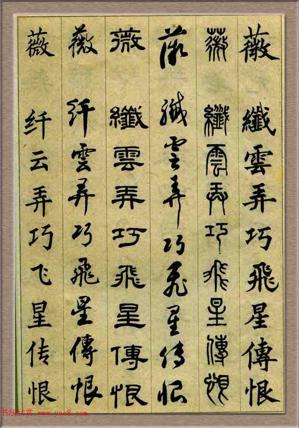 薇 纖雲弄巧飛星傳恨
薇 纖雲弄巧飛星傳恨
薇 纖雲弄巧飛星傳恨
薇 纖雲弄巧飛星傳恨
薇 纤雲弄巧飛星傳恨
薇 纤云弄巧飞星传恨